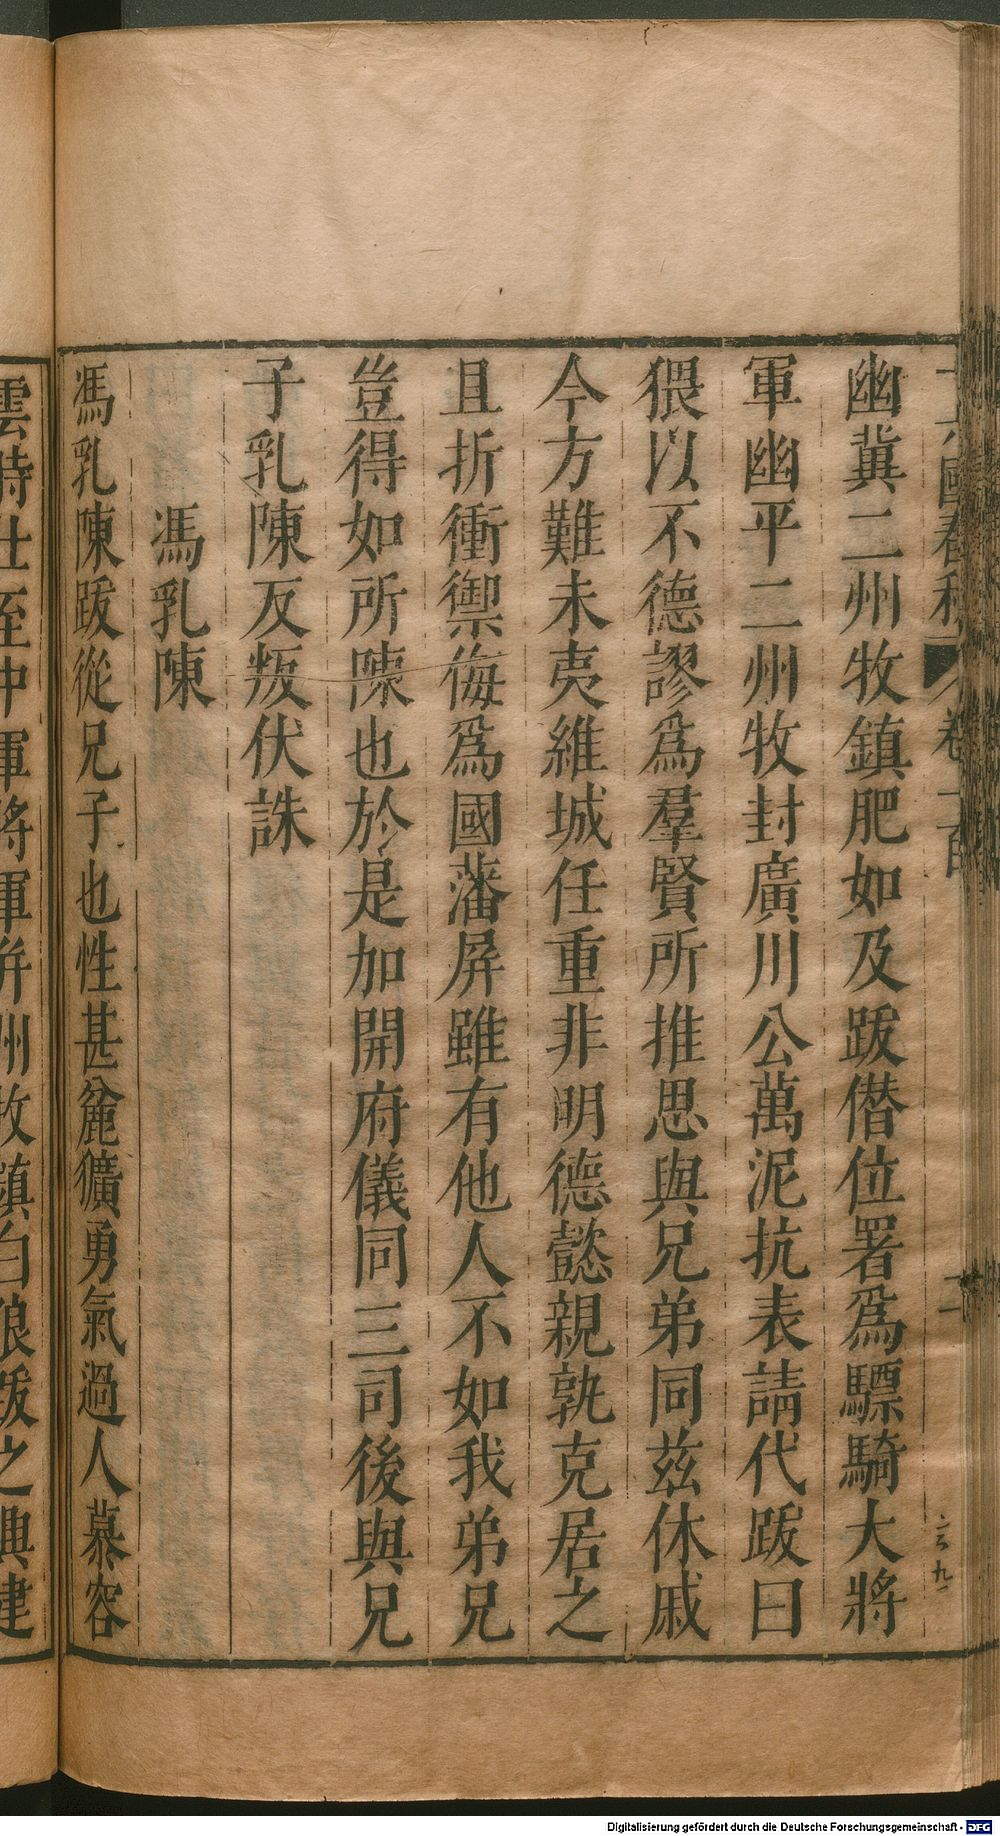 幽冀二州牧鎮肥如及跋僭位署爲驃騎大將
軍幽平二州牧封廣川公萬泥抗表請代跋曰
猥以不德謬爲羣賢所推思與兄弟同茲休戚
今方難未夷維城任重非明德懿親孰克居之
且折衝禦侮爲國藩屏雖有他人不如我弟兄
豈得如所陳也於是加開府儀同三司後與兄
子乳陳反叛伏誅
馮乳陳
馮乳陳跋從兄子也性甚麄獷勇氣過人慕容
雲時仕至中軍將軍并州牧鎮白狼跋之興建
Digitalisierung gefördert durch die Deutsche Forschungsgemeinschaft - DFG